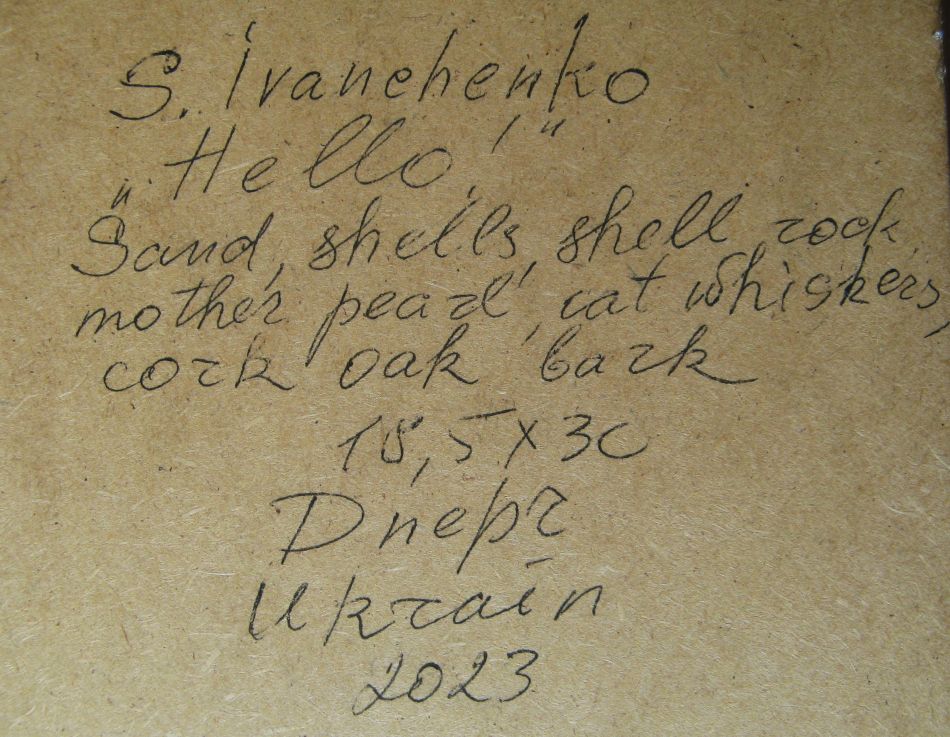 S. Ivanchenko
„Hello!"
Sand, shells, shell rock,
mother pearl, cat whiskers,
cork oak bark
18,5x30
Dnepr
Ukrain
2023